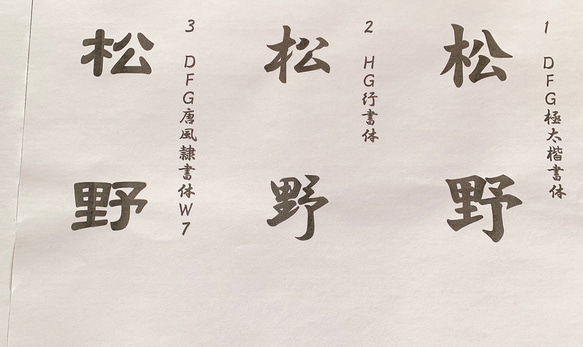 1 DFG極太楷書体
松野
2 HG行書体
松野
3 DFG唐風隷書体W7
松野